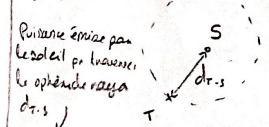 Puissance émise par
le soleil pr traverser
la sphère de rayon
dT-S
S
dT-S
T